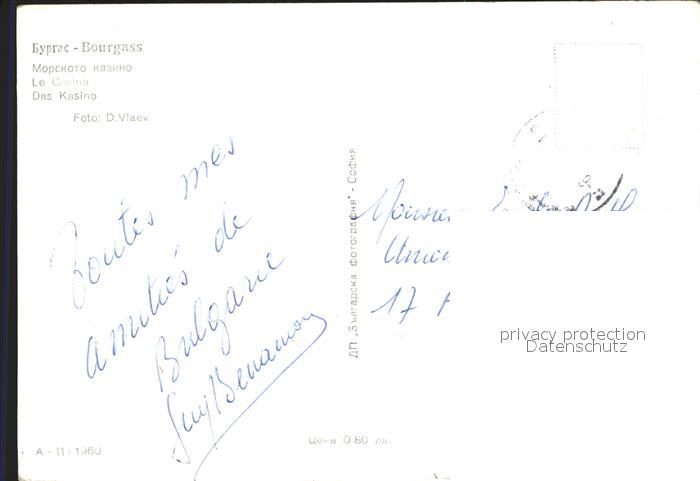 Бургас - Bourgass
Морското казино
Le Casino
Das Kasino
Foto: D. Vlaev
Toutes mes
amitiés de
Bulgarie
Guy Benamou
A - 11 / 1960
Цена 0.80 лв.
ДП „Българска фотография" - София
Monsieur
17
privacy protection
Datenschutz